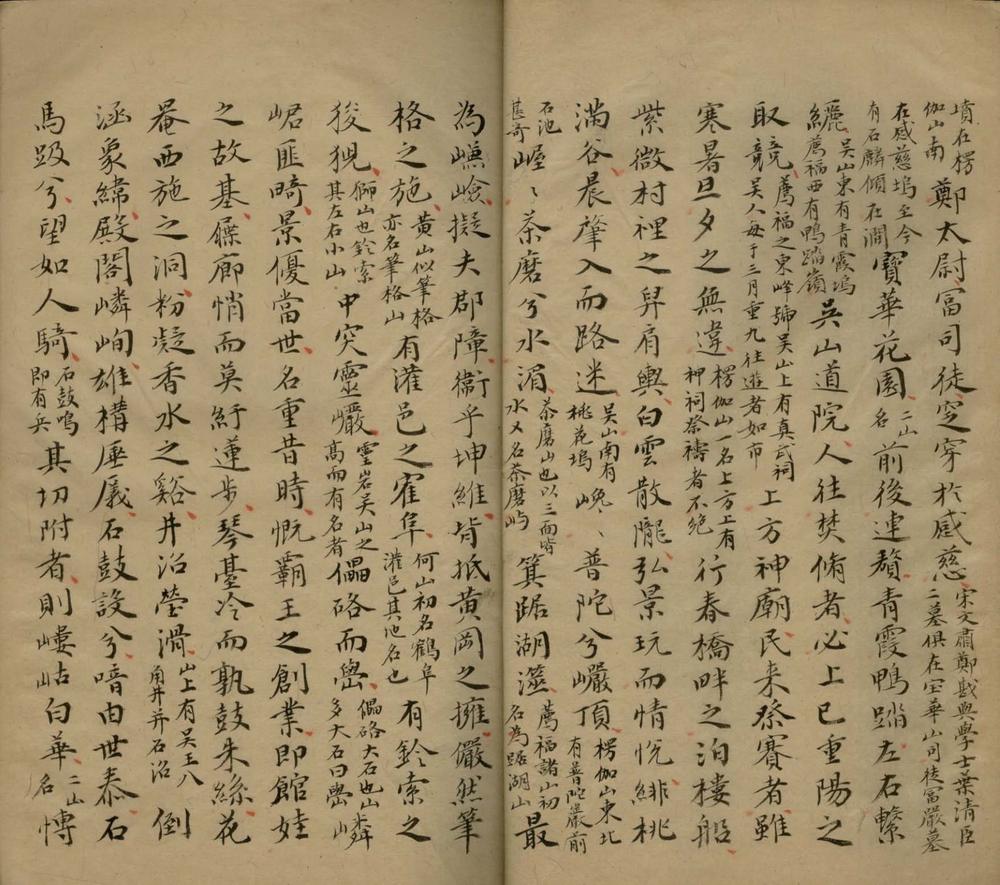 墳在楞伽山南鄭太尉富司徒窆穿於感慈宋文肅鄭戩與學士葉清臣二墓俱在宝華山司徒富嚴墓
在感慈塢至今有石麟傾在澗寶華花園二山名前後連贅青霞鴨踏左右縏
纚吳山東有青霞塢薦福西有鴨踏嶺吳山道院人往焚脩者必上巳重陽之
取競薦福之東峰號吳山上有真武祠吳人每于三月重九往遊者如市上方神廟民来祭賽者雖
寒暑旦夕之無違楞伽山一名上方上有神祠祭禱者不绝行春橋畔之泊樓船
紫微村裡之舁肩輿白雲散朧弘景玩而情悅緋桃
滿谷晨肇入而路迷吳山南有桃花塢巉〻普陀兮巖頂楞伽山東北有普陀巖前
石池甚奇〻茶磨兮水湄茶磨山也以三面皆水又名茶磨屿箕踞湖澨薦福諸山初名為踞湖山最
為嶮擬夫郡障衞乎坤維背抵黄岡之擁儼然筆
格之施黄山似筆格亦名筆格山有濯邑之寉阜何山初名鶴阜濯邑其地名也有鈴索之
狻猊獅山也鈴索其左右小山中突靈巖靈岩吴山之高而有名者儡硌而嶨儡硌大石也山多大石曰嶨嶙
峮匪畸景優當世名重昔時慨霸王之創業即館娃
之故基屧廊悄而莫紆蓮步琴臺冷而孰鼓朱絲花
菴西施之洞粉凝香水之谿井沼瑩滑山上有吴王八角井并石沼倒
涵象緯殿閣嶙峋雄構厜㕒石鼓設兮喑由世泰石
馬跂兮望如人騎石鼓鳴即有兵其切附者則嶁岵白華二山名慱